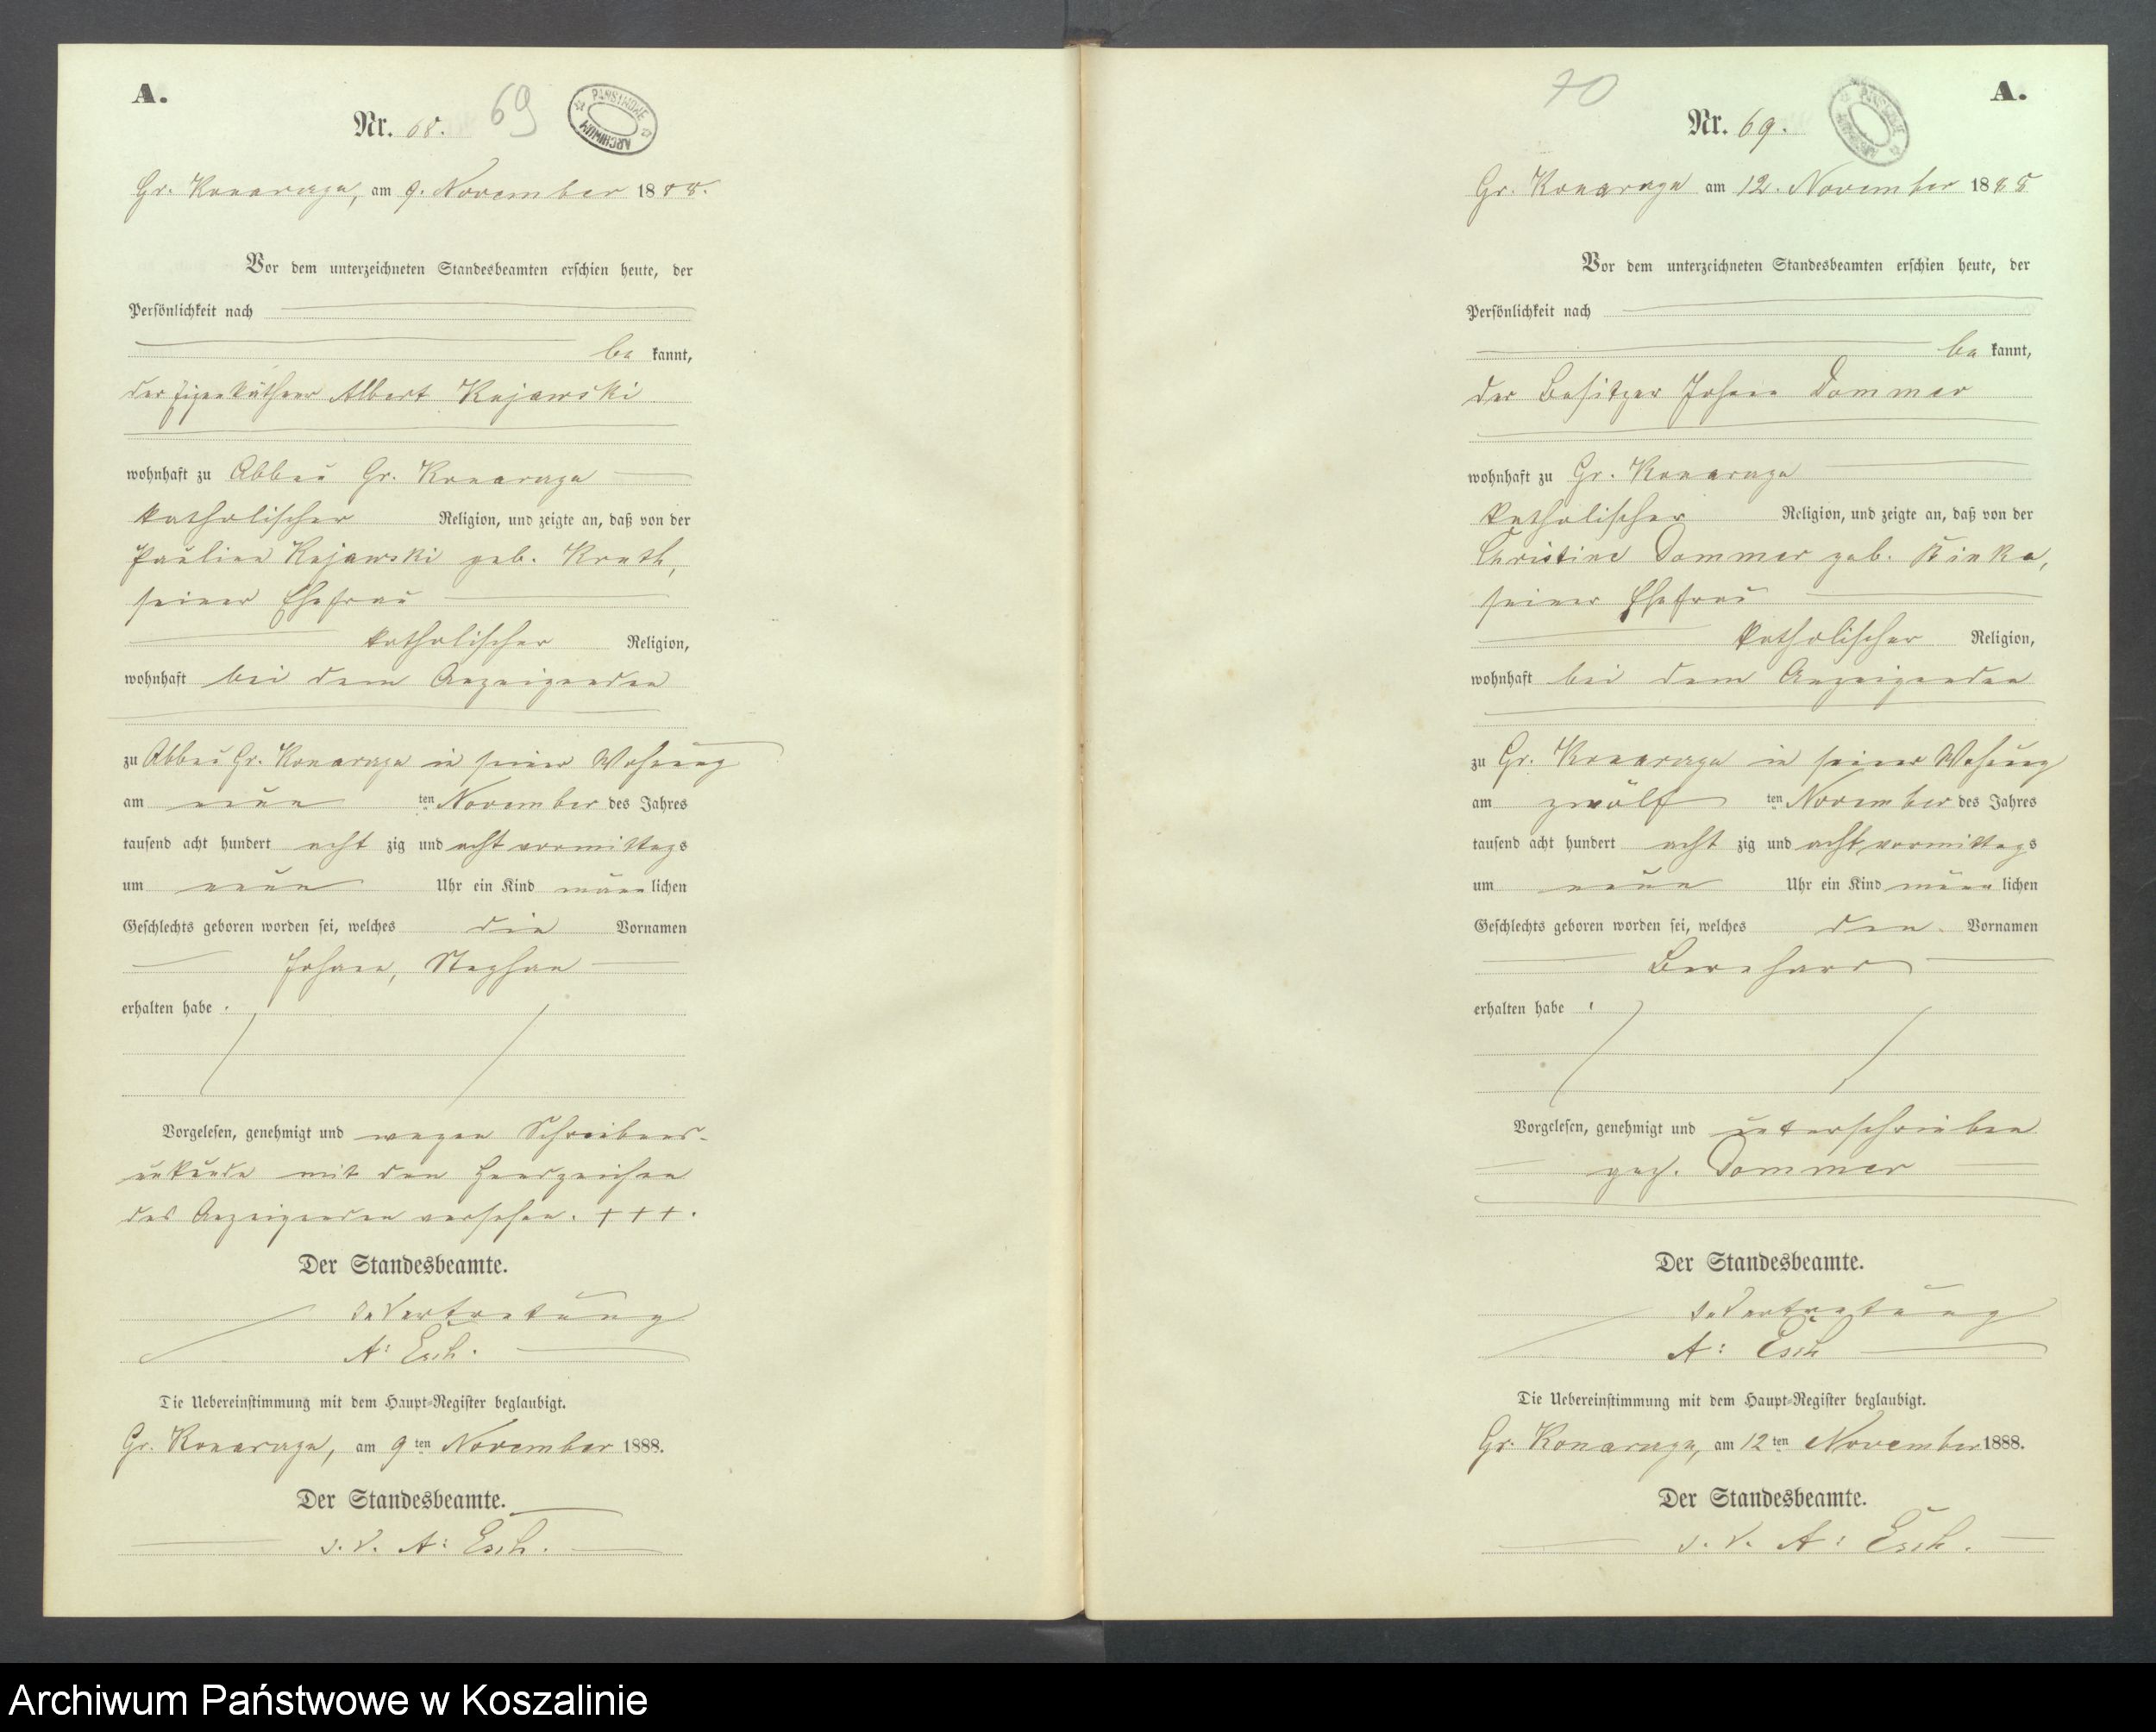 A.
Nr. 68.
69
PAŃSTWOWE ARCHIWUM
Gr. Konarczyn, am 9. November 1888.
Vor dem unterzeichneten Standesbeamten erschien heute, der
Persönlichkeit nach
be kannt,
der Eigenkäthner Albert Kujawski
wohnhaft zu Abbau Gr. Konarczyn
katholischer Religion, und zeigte an, daß von der
Pauline Kujawski geb. Knuth,
seiner Ehefrau
katholischer Religion,
wohnhaft bei dem Anzeigenden
zu Abbau Gr. Konarczyn in seiner Wohnung
am neun ten November des Jahres
tausend acht hundert acht zig und acht vormittags
um neun Uhr ein Kind männ lichen
Geschlechts geboren worden sei, welches die Vornamen
Johann, Stephan
erhalten habe.
Vorgelesen, genehmigt und wegen Schreibens-
unkunde mit den Handzeichen
des Anzeigenden versehen. +++.
Der Standesbeamte.
In Vertretung
A: Esch.
Die Uebereinstimmung mit dem Haupt-Register beglaubigt.
Gr. Konarczyn, am 9 ten November 1888.
Der Standesbeamte.
I. V. A: Esch.
70
A.
Nr. 69.
PAŃSTWOWE ARCHIWUM
Gr. Konarczyn am 12. November 1888
Vor dem unterzeichneten Standesbeamten erschien heute, der
Persönlichkeit nach
be kannt,
der Besitzer Johann Dommer
wohnhaft zu Gr. Konarczyn
katholischer Religion, und zeigte an, daß von der
Christine Dommer geb.
seiner Ehefrau
katholischer Religion,
wohnhaft bei dem Anzeigenden
zu Gr. Konarczyn in seiner Wohnung
am zwölf ten November des Jahres
tausend acht hundert acht zig und acht vormittags
um neun Uhr ein Kind männ lichen
Geschlechts geboren worden sei, welches den Vornamen
Bernhard
erhalten habe.
Vorgelesen, genehmigt und unterschrieben
gez. Dommer
Der Standesbeamte.
In Vertretung
A: Esch
Die Uebereinstimmung mit dem Haupt-Register beglaubigt.
Gr. Konarczyn, am 12 ten November 1888.
Der Standesbeamte.
I. V. A: Esch.
Archiwum Państwowe w Koszalinie